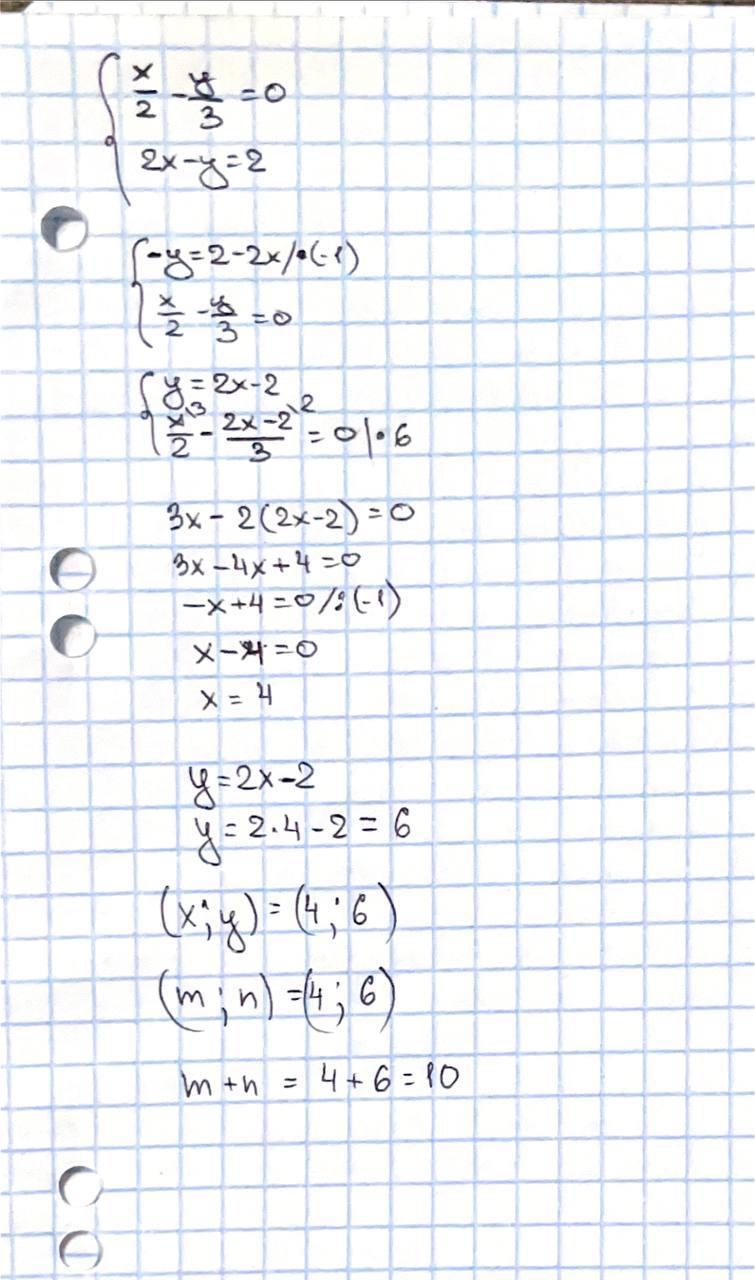 x/2 - y/3 = 0
2x - y = 2
-y = 2 - 2x /•(-1)
x/2 - y/3 = 0
y = 2x - 2
x\3/2 - 2x-2\2/3 = 0 |• 6
3x - 2(2x-2) = 0
3x - 4x + 4 = 0
-x + 4 = 0 /:(-1)
x - 4 = 0
x = 4
y = 2x - 2
y = 2 • 4 - 2 = 6
(x; y) = (4; 6)
(m; n) = (4; 6)
m + n = 4 + 6 = 10